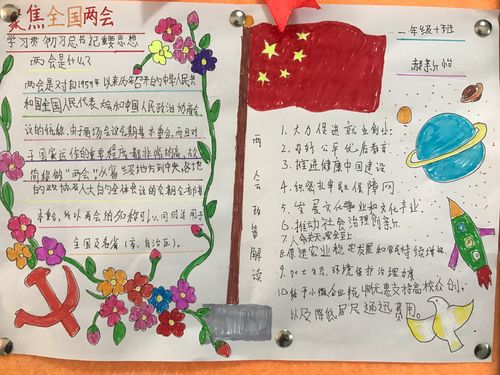 聚焦全国两会
学习贯彻习总书记重要思想
两会是什么?
两会是对自1959年以来历年召开的中华人民共
和国全国人民代表大会和中国人民政治协商会
议的统称。由于两场会议会期基本重合,而且对
于国家运作的重要程度都非常的高,故
简称做“两会”。从省级地方到中央,各地
的政协及人大的全体会议的会期全部
基本重合,所以两会的名称可以同时适用于
全国及各省(市、自治区)。
两会政策解读
一年级十班
郝新怡
1.大力促进就业创业
2.办好公平优质教育
3.推进健康中国建设
4.织密扎牢民生保障网
5.发展文化事业和文化产业
6.推动社会治理创新
7.
8.促进农业稳定发展和农民持续增收
9.加大生态环境保护治理力度
10.给予小微企业税收优惠支持高校双创,
以及降低居民通讯费用。